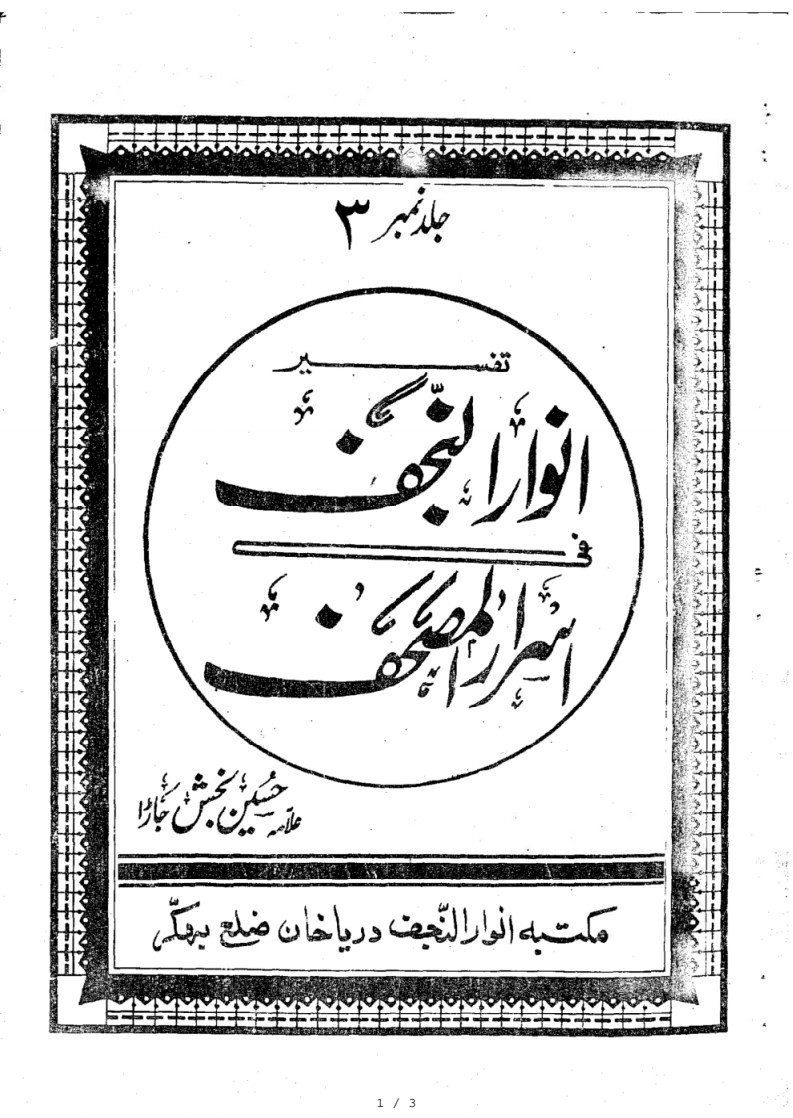 جلد نمبر ۳
تفسیر
انوار النّجف
فی
اسرار المصحف
علامہ حسین بخش جاڑا
مکتبہ انوار النّجف دریا خان ضلع بھکّر
1 / 3